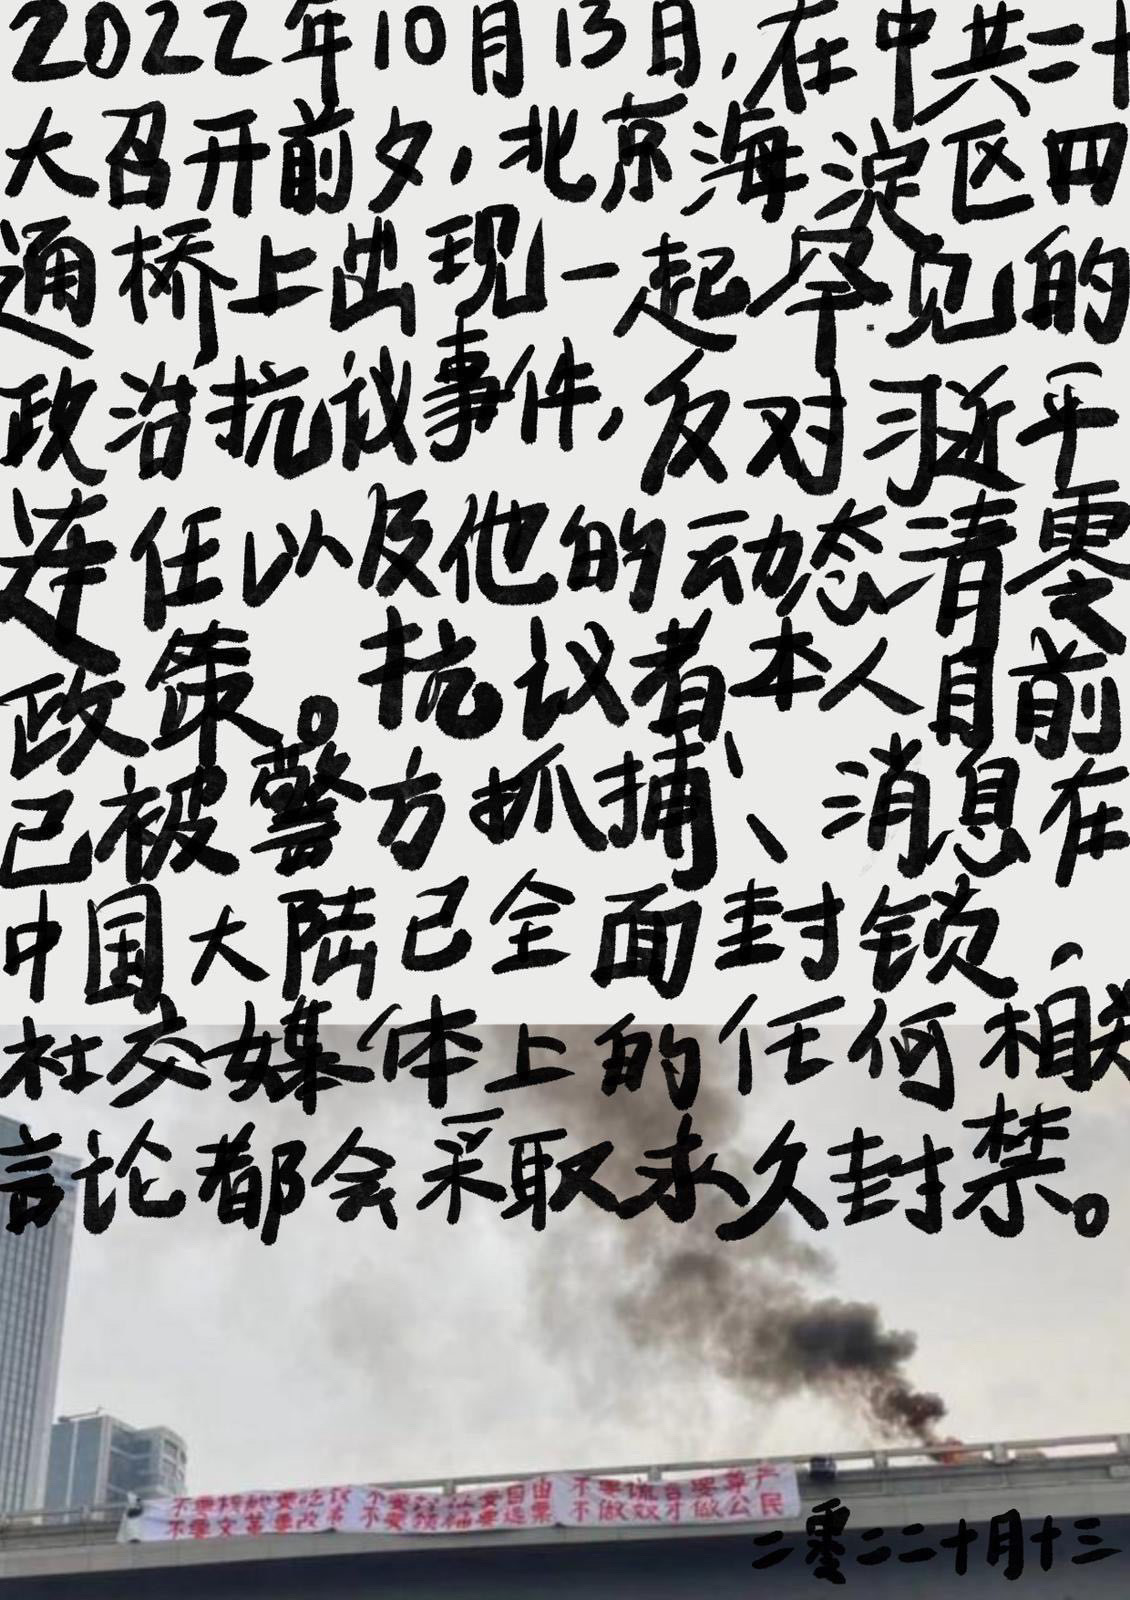 2022年10月13日,在中共二十
大召开前夕,北京海淀区四
通桥上出现一起罕见的
政治抗议事件,反对习近平
连任以及他的动态清零
政策。抗议者本人目前
已被警方抓捕、消息在
中国大陆已全面封锁,
社交媒体上的任何相关
言论都会采取永久封禁。
不要核酸要吃饭 不要封控要自由 不要谎言要尊严
不要文革要改革 不要领袖要选票 不做奴才做公民
二零二二十月十三